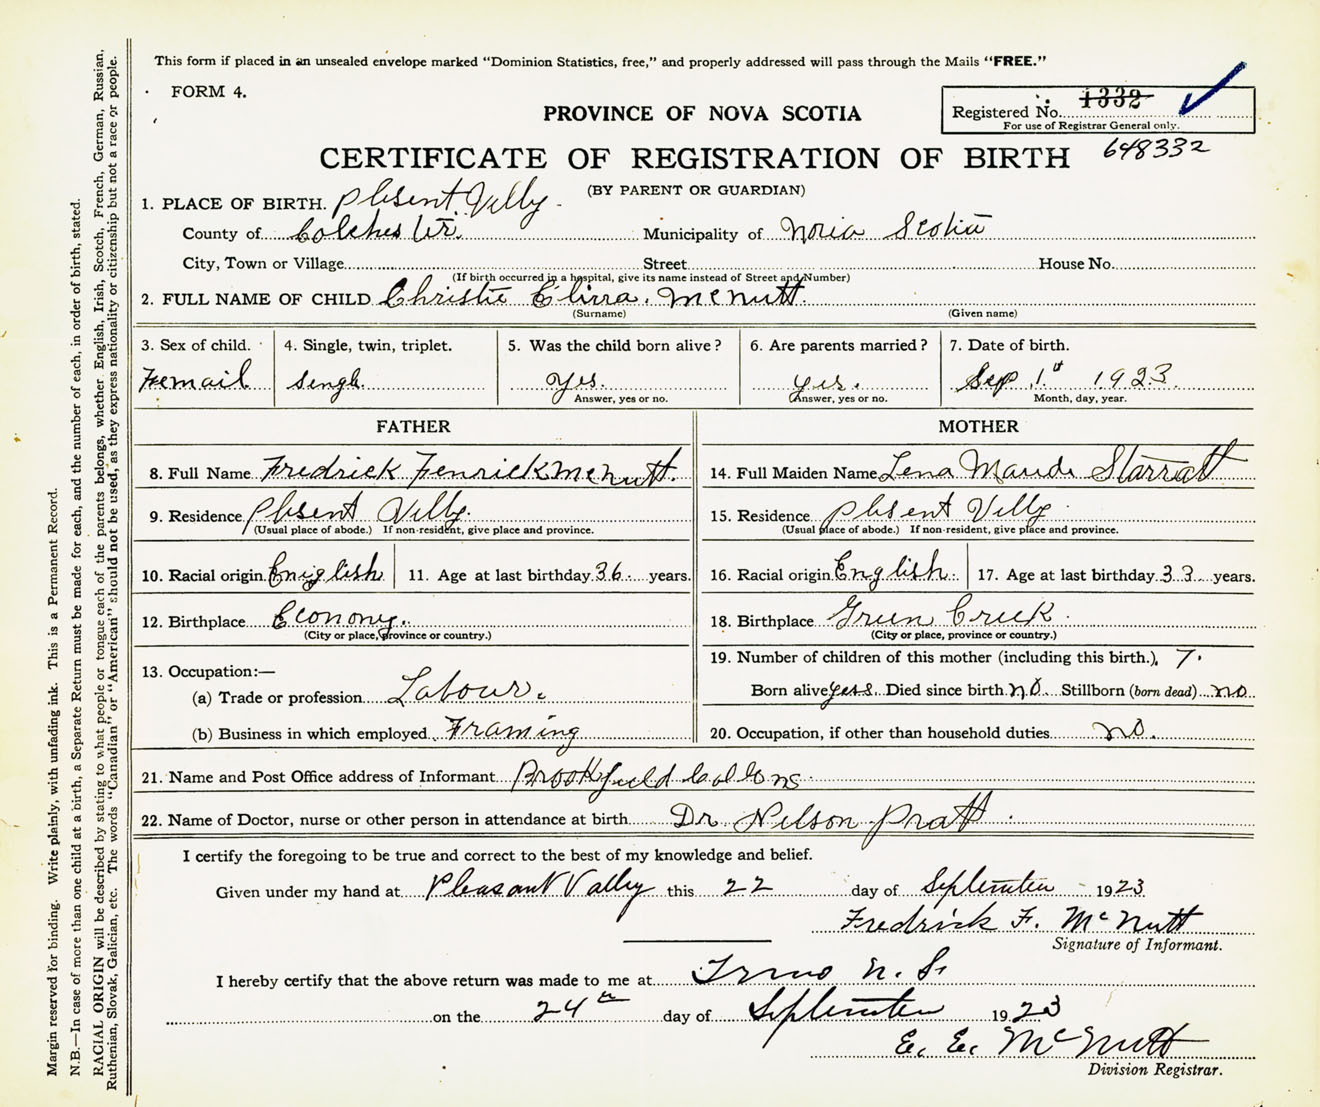 This form if placed in an unsealed envelope marked "Dominion Statistics, free," and properly addressed will pass through the Mails "FREE."
FORM 4.
Registered No. 1332
For use of Registrar General only.
648332
PROVINCE OF NOVA SCOTIA
CERTIFICATE OF REGISTRATION OF BIRTH
(BY PARENT OR GUARDIAN)
1. PLACE OF BIRTH. Plesent Velly
County of Colchester. Municipality of Novia Scotia
City, Town or Village Street House No.
(If birth occurred in a hospital, give its name instead of Street and Number)
2. FULL NAME OF CHILD Christie Mcnutt.
(Surname) (Given name)
3. Sex of child. 4. Single, twin, triplet. 5. Was the child born alive? 6. Are parents married? 7. Date of birth.
Femail Singl. yes. yes. Sep 1st 1923.
Answer, yes or no. Answer, yes or no. Month, day, year.
FATHER MOTHER
8. Full Name Fredrick Fenrick McNutt. 14. Full Maiden Name Lena Maude Starratt
9. Residence Plesent Velly. 15. Residence Plesent Velly
(Usual place of abode.) If non-resident, give place and province. (Usual place of abode.) If non-resident, give place and province.
10. Racial origin. English 11. Age at last birthday 36 years. 16. Racial origin English. 17. Age at last birthday 33 years.
12. Birthplace Econony. 18. Birthplace Green Creek
(City or place, province or country.) (City or place, province or country.)
13. Occupation:— 19. Number of children of this mother (including this birth.) 7.
(a) Trade or profession Labour. Born alive yes. Died since birth no. Stillborn (born dead) no
(b) Business in which employed Framing 20. Occupation, if other than household duties no.
21. Name and Post Office address of Informant Brookfield
22. Name of Doctor, nurse or other person in attendance at birth Dr Nelson Pratt
I certify the foregoing to be true and correct to the best of my knowledge and belief.
Given under my hand at Pleasant Valley this 22 day of September 1923
Fredrick F. McNutt
Signature of Informant.
I hereby certify that the above return was made to me at Truro N. S.
on the 24th day of September 1923
E. E. McNutt
Division Registrar.
Margin reserved for binding. Write plainly, with unfading ink. This is a Permanent Record.
N.B.—In case of more than one child at a birth, a Separate Return must be made for each, and the number of each, in order of birth, stated.
RACIAL ORIGIN will be described by stating to what people or tongue each of the parents belongs, whether English, Irish, Scotch, French, German, Russian,
Ruthenian, Slovak, Galician, etc. The words "Canadian" or "American" should not be used, as they express nationality or citizenship but not a race or people.